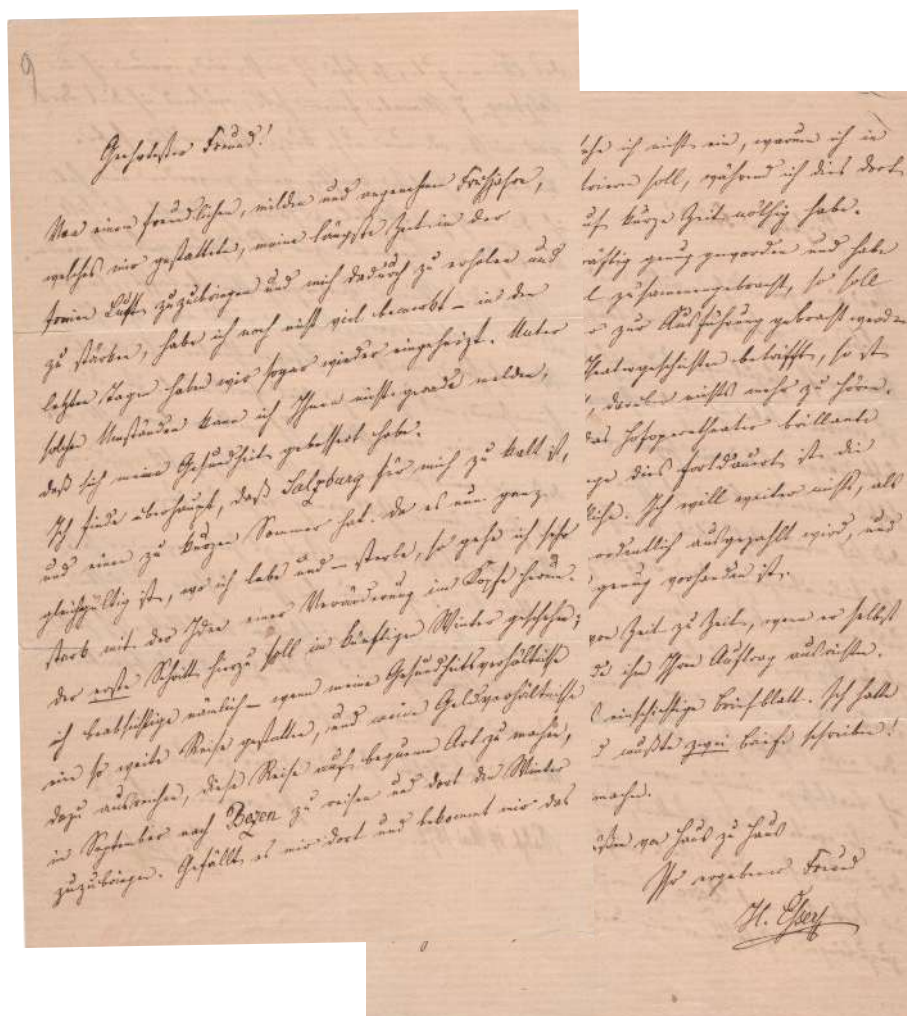 9
Geehrtester Freund!
Von einem freundlichen, milden und angenehmen Frühjahre,
welches mir gestattete, meine längste Zeit in der
freien Luft zuzubringen und mich dadurch zu erholen und
zu stärken, habe ich noch nicht viel bemerkt – in den
letzten Tagen haben wir sogar wieder eingeheizt. Unter
solchen Umständen kann ich Ihnen nicht gerade melden,
daß sich meine Gesundheit gebessert habe.
Ich finde überhaupt, daß Salzburg für mich zu kalt ist,
und einen zu kurzen Sommer hat. Da es nun ganz
gleichgültig ist, wo ich lebe und – sterbe, so gehe ich sehr
stark mit der Idee einer Veränderung im Kopfe herum.
Der erste Schritt hierzu soll im künftigen Winter geschehen;
ich beabsichtige nämlich – wenn meine Gesundheitsverhältnisse
eine so weite Reise gestatten, und meine Geldverhältnisse
dazu ausreichen, diese Reise auf bequeme Art zu machen,
im September nach Bozen zu reisen und dort den Winter
zuzubringen. Gefällt es mir dort und bekommt mir das
ich nicht ein, warum ich in
soll, während ich dies dort
auf kurze Zeit nöthig habe.
kräftig genug geworden und habe
zusammengebracht, so soll
zur Ausführung gebracht werden
Theatergeschichten betrifft, so ist
darüber nichts mehr zu hören.
das Hofoperntheater brillante
dies fortdauert, ist die
Ich will weiter nichts, als
ordentlich ausgezahlt wird, und
genug vorhanden ist.
von Zeit zu Zeit, wenn er selbst
ihm Ihren Auftrag ausrichten.
einschichtige Briefblatt. Ich hatte
mußte zwei Briefe schreiben!
machen.
von Haus zu Haus
Ihr ergebener Freund
H. Esser